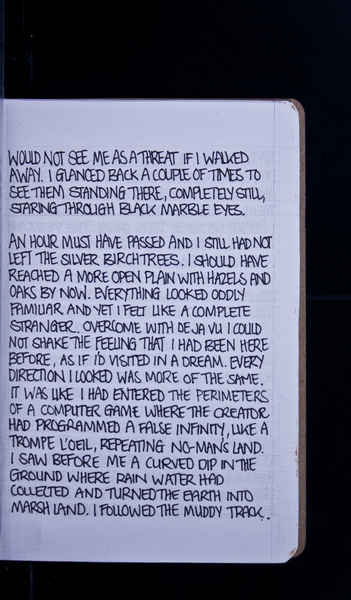 WOULD NOT SEE ME AS A THREAT IF I WALKED
AWAY. I GLANCED BACK A COUPLE OF TIMES TO
SEE THEM STANDING THERE, COMPLETELY STILL,
STARING THROUGH BLACK MARBLE EYES.
AN HOUR MUST HAVE PASSED AND I STILL HAD NOT
LEFT THE SILVER BIRCH TREES. I SHOULD HAVE
REACHED A MORE OPEN PLAIN WITH HAZELS AND
OAKS BY NOW. EVERYTHING LOOKED ODDLY
FAMILIAR AND YET I FELT LIKE A COMPLETE
STRANGER. OVERCOME WITH DEJA VU I COULD
NOT SHAKE THE FEELING THAT I HAD BEEN HERE
BEFORE, AS IF I'D VISITED IN A DREAM. EVERY
DIRECTION I LOOKED WAS MORE OF THE SAME.
IT WAS LIKE I HAD ENTERED THE PERIMETERS
OF A COMPUTER GAME WHERE THE CREATOR
HAD PROGRAMMED A FALSE INFINITY, LIKE A
TROMPE L'OEIL, REPEATING NO-MAN'S LAND.
I SAW BEFORE ME A CURVED DIP IN THE
GROUND WHERE RAIN WATER HAD
COLLECTED AND TURNED THE EARTH INTO
MARSH LAND. I FOLLOWED THE MUDDY TRACK.